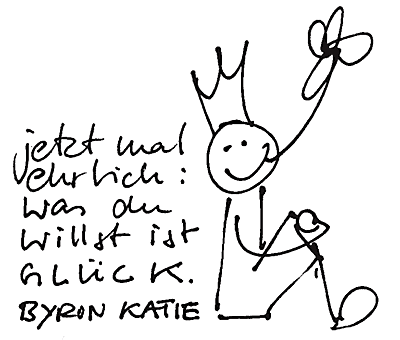 jetzt mal
ehrlich:
was du
willst ist
GLÜCK.
BYRON KATIE